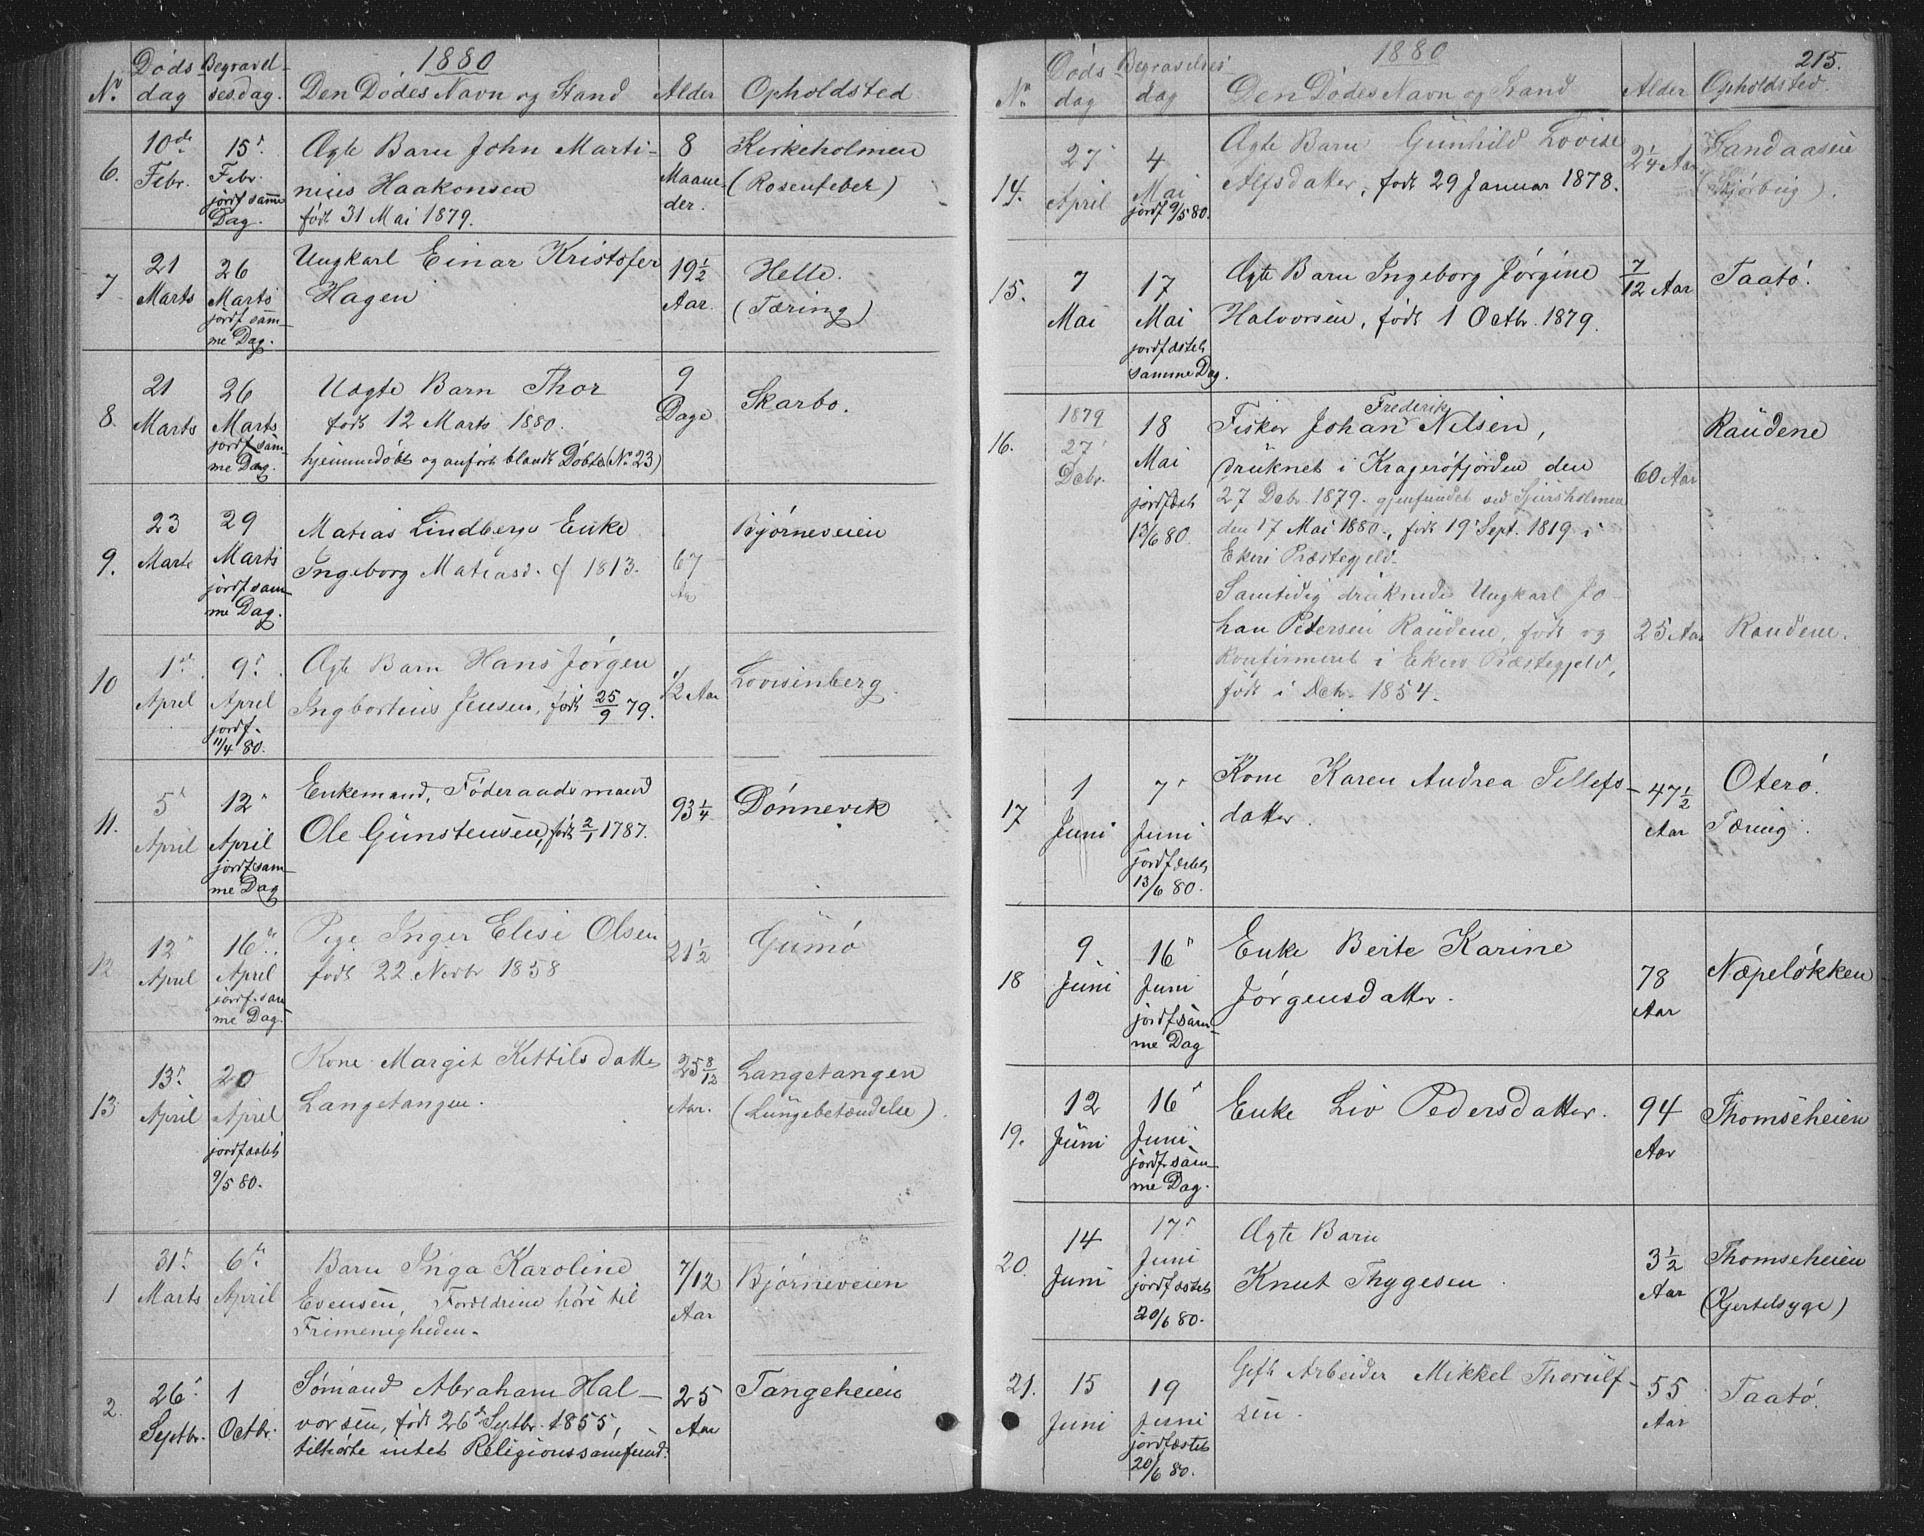 1880
No. Døds dag Begravel- ses dag. Den Dødes Navn og Stand Alder Opholdsted
6. 10de Febr. 15. Febr. jordf samme Dag. Ægte Barn John Marti- 8 Maane- der. Kirkeholmen
nius Haakonsen (Rosenfeber)
født 31 Mai 1879.
7 21 Marts 26 Marts jordf sam- me Dag. Ungkarl Einar Kristofer 19½ Aar. Helle.
Hagen (Tæring)
8. 21 Marts 26 Marts jordf sam- me Dag. Uægte Barn Thor 9 Dage Skarbo.
født 12 Marts 1880.
hjemmedøbt og anført blandt Døbte (No 23)
9. 23 Marts 29 Marts jordf sam- me Dag. Matias Lindbergs Enke 67 Aar Bjørneveien
Ingeborg Matiasd. f 1813.
10 1ste April 9. April jordf. 11/4 80. Ægte Barn Hans Jørgen 1/2 Aar Lovisenberg.
Ingbortius Jensen, født 25/9 79.
11. 5. April 12 April jordf. sam- me Dag Enkemand, Føderaadsmand 93¼ Dønnevik
Ole Gunstensen, født 2/1 1787.
12 12 April 16. April jordf. sam- me Dag. Pige Inger Elise Olsen 21½ Gumø
født 22 Novbr 1858
13 13. April 20 April jordfæstet 9/5 80. Kone Margit Kettilsdatter 25 8/12 Aar. Langetangen
Langetangen. (Lungebetændelse).
1 31. Marts 6. April Barn Inga Karoline 7/12 Aar Bjørneveien
Evensen, Forældrene høre til
Frimenigheden.
2. 26. Septbr. 1 Octbr. Sømand Abraham Hal- 25 Aar Tangeheien
vorsen, født 26 Septbr. 1855,
tilhørte intet Religionssamfund.
1880 215.
No. Døds dag Begravelses dag Den Dødes Navn og Stand Alder Opholdsted.
14. 27 April 4 Mai jordf 9/5 80. Ægte Barn Gunhild Lovise 2¼ Aar Sandaasen
Alfsdatter, født 29 Januar 1878. (Skjørbug).
15. 7 Mai 17 Mai jordfæstet samme Dag. Ægte Barn Ingeborg Jørgine 7/12 Aar Taatø.
Halvorsen, født 1 Octbr. 1879.
16. 1879 27 Dcbr. 18 Mai jordfæst 13/6 80. Fisker Johan Frederik Nilsen, 60 Aar Raudene
(druknet i Kragerøfjorden den
27 Dcbr. 1879. gjenfundet ved
den 17 Mai 1880., født 19 Sept. 1819 i
Ekers Præstegjeld.
Samtidig druknede Ungkarl Jo-
han Petersen Raudene, født og 25 Aar Raudene.
konfirmeret i Ekers Præstegjeld,
født i 1854.
17 1 Juni 7. Juni jordfæstet 13/6 80. Kone Karen Andrea Tellefs- 47½ Aar Oterø.
datter. Tæring.
18 9. Juni 16 Juni jordf. sam- me Dag Enke Berte Karine 78 Aar Næpeløkken
Jørgensdatter.
19. 12 Juni 16 Juni jordf. sam- me Dag. Enke Liv Pedersdatter. 94 Aar Thomseheien
20. 14 Juni 17. Juni jordfæstet 20/6 80. Ægte Barn 3½ Aar Thomseheien
Knut Thygesen. (Kjertelsyge)
21. 15 Juni 19 Juni jordfæstet 20/6 80. Gift Arbeider Mikkel Thorulf- 55 Aar Taatø.
sen.